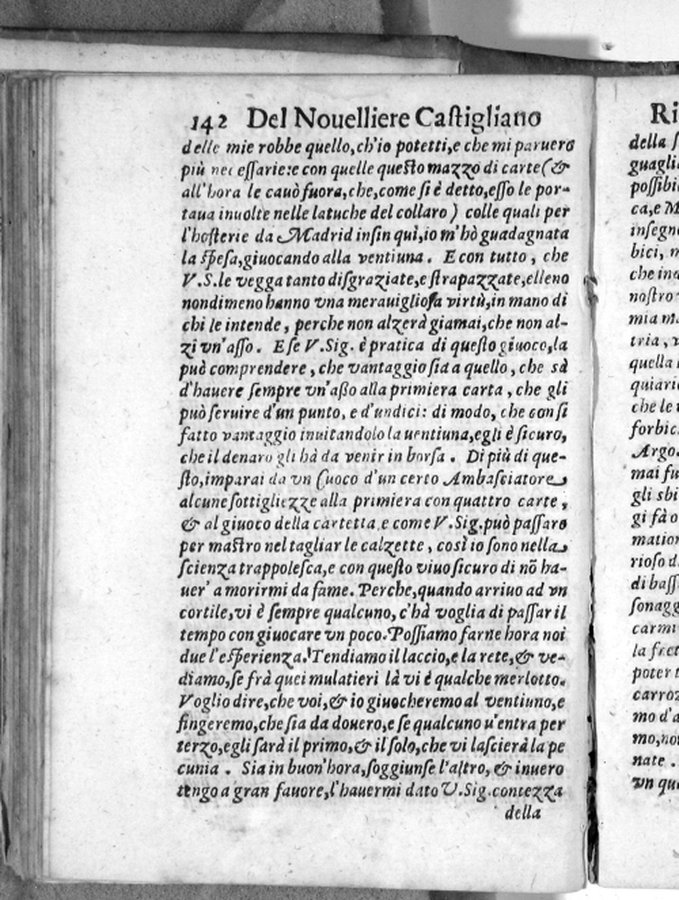 142 Del Nouelliere Castigliano
delle mie robbe quello,ch'io potetti,e che mi paruero
più necessarie:e con quelle questo mazzo di carte (&
all'hora le cauò fuora,che,come si è detto,esso le por-
taua inuolte nelle latuche del collaro) colle quali per
l'hosterie da Madrid insin quì,io m'hò guadagnata
la spesa,giuocando alla ventiuna. E con tutto, che
V.S.le vegga tanto disgraziate,e strapazzate,elleno
nondimeno hanno vna merauigliosa virtù,in mano di
chi le intende, perche non alzerà giamai,che non al-
zi vn'asso. E se V.Sig. è pratica di questo giuoco,la
può comprendere, che vantaggio sia a quello, che sà
d'hauere sempre vn'asso alla primiera carta, che gli
può seruire d'un punto, e d'undici: di modo, che con si
fatto vantaggio inuitandolo la uentiuna,egli è sicuro,
che il denaro gli hà da venir in borsa. Di più di que-
sto,imparai da vn Cuoco d'un certo Ambasciatore
alcune sottigliezze alla primiera con quattro carte,
& al giuoco della cartetta,e come V.Sig.può passare
per mastro nel tagliar le calzette, così io sono nella
scienza trappolesca,e con questo viuo sicuro di nõ ha-
uer' a morirmi da fame. Perche,quando arriuo ad vn
cortile,vi è sempre qualcuno, c'hà voglia di passar il
tempo con giuocare vn poco. Possiamo farne hora noi
due l'esperienza. Tendiamo il laccio,e la rete,& ve-
diamo,se frà quei mulatieri là vi è qualche merlotto.
Voglio dire,che voi,& io giuocheremo al ventiuno,e
fingeremo,che sia da douero,e se qualcuno u'entra per
terzo,egli sarà il primo,& il solo,che vi lascierà la pe
cunia. Sia in buon'hora,soggiunse l'altro,& inuero
tengo a gran fauore,l'hauermi dato V.Sig.contezza
della
Ri
della
guagli
possibi
ca,e M
insegn
bici, m
che in
nostro
mia m
tria,
quella
quiari
che le
forbic
Argo.
mai fu
gli sbi
gi fà o
mation
rioso d
di bass
sonagg
carmi
la fret
poter t
carroz
mo d'a
mo,non
nate.
vn qu